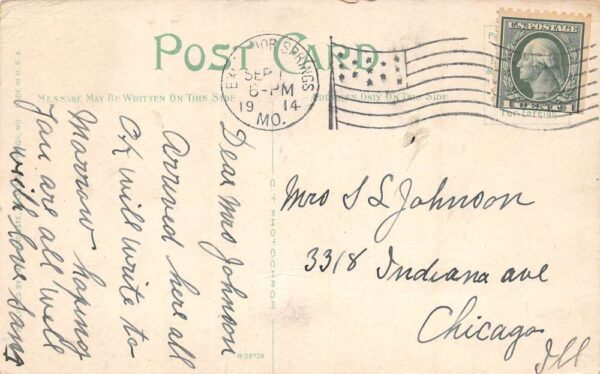 POST CARD
MESSAGE MAY BE WRITTEN ON THIS SIDE
ADDRESS ONLY ON THIS SIDE
SPRINGS
SEP
6-PM
1914
MO.
U.S. POSTAGE
1 CENT 1
Dear Mrs Johnson
Arrived here all
OK will write to
Morrow hoping
You are all well
with love
Mrs S L Johnson
3318 Indiana ave
Chicago
Ill
C.T. PHOTOCHROM
MADE IN U.S.A.